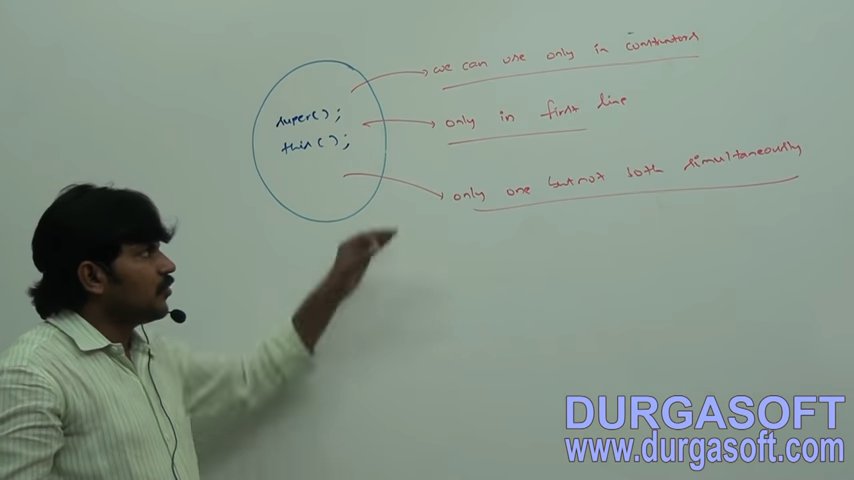 we can use only in constructors
super();
only in first line
this();
only one but not both simultaneously
DURGASOFT
www.durgasoft.com